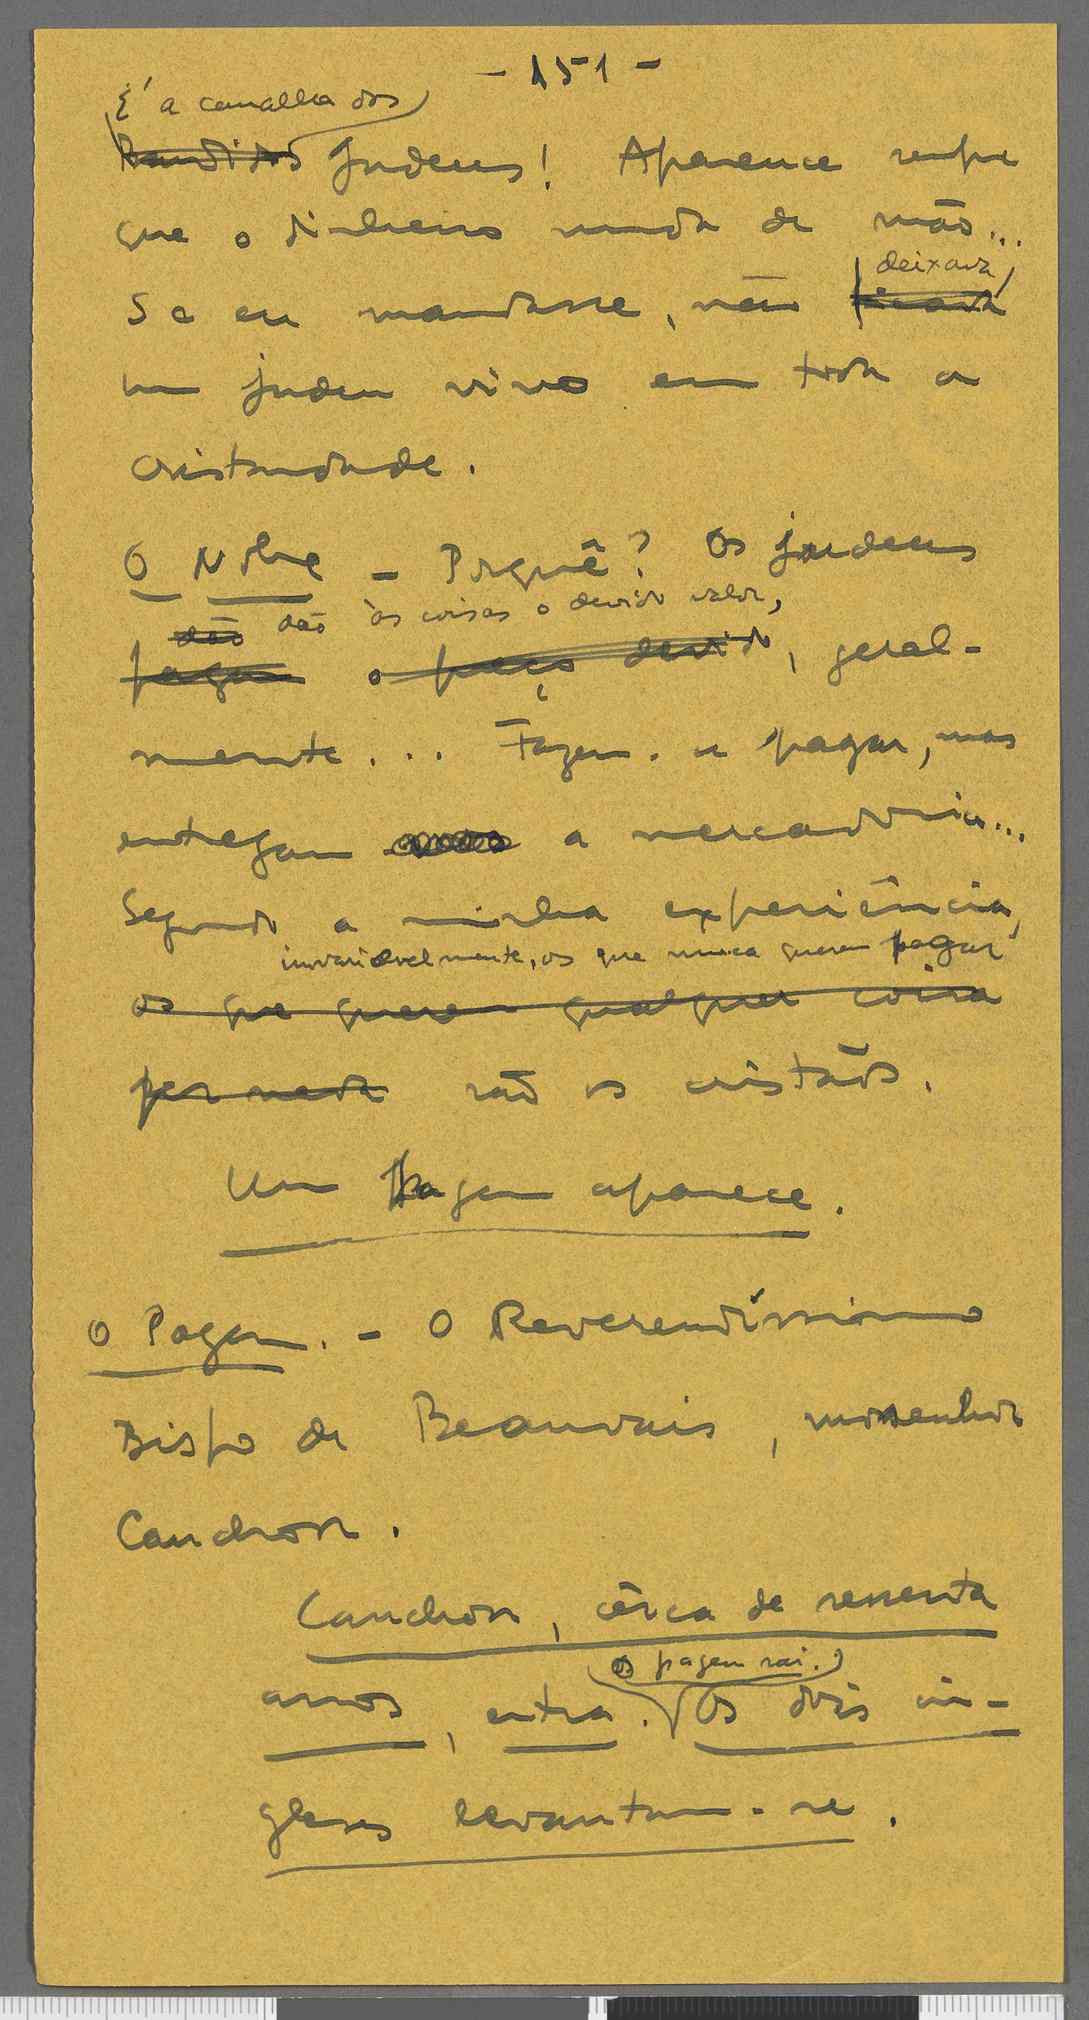 - 151 -
É a canalha dos
Bandidos Judeus! Aparence sempre
que o dinheiro muda de mão...
deixava
Se eu mandasse, não ficava
um judeu vivo em toda a
cristandade.
O Nobre - Porquê? Os judeus
dão dão às coisas o devido valor,
pagam o preço devido, geral-
mente... Fazem-se pagar, mas
entregam a mercadoria...
Segundo a minha experiência,
invariavelmente, os que nunca querem pagar
os que querem qualquer coisa
por nada são os cristãos.
Um Pagem aparece.
O Pagem. - O Reverendíssimo
Bispo de Beauvais, monsenhor
Cauchon.
Cauchon, cêrca de sessenta
O pagem sai.
anos, entra. Os dois in-
gleses levantam-se.